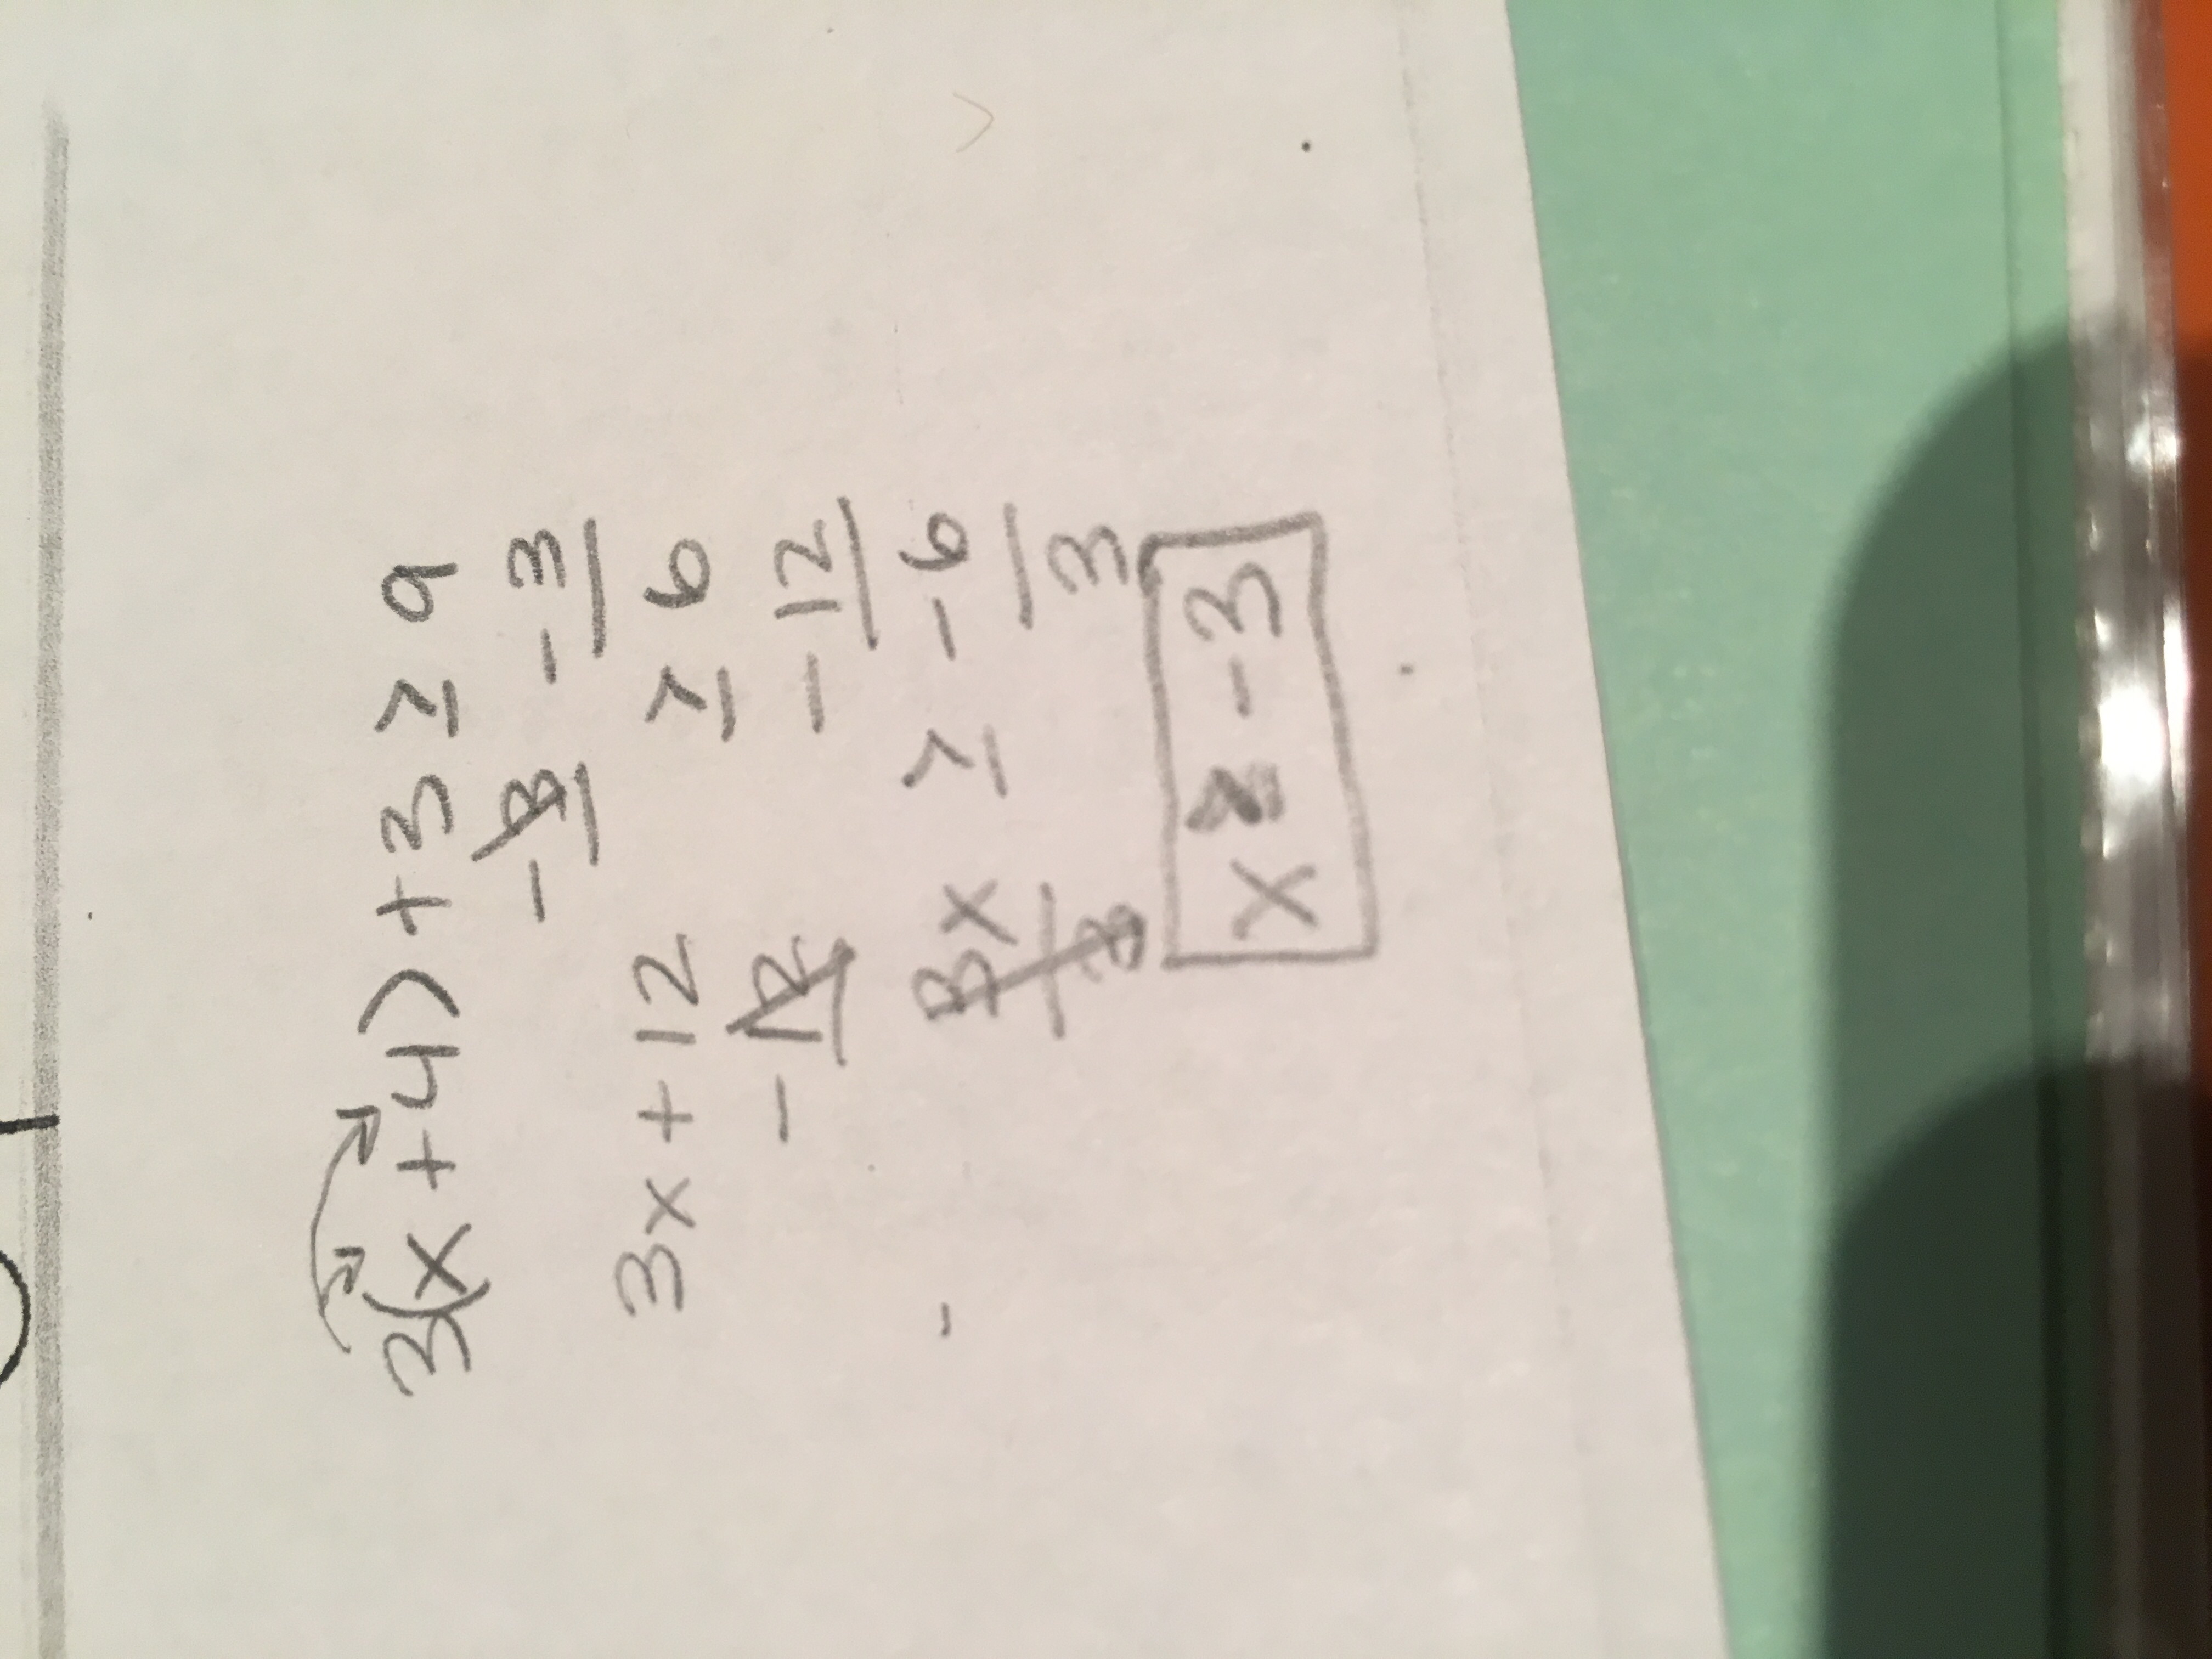 3(x + 4) + 3 ≥ 9
- 3 - 3
3x + 12 ≥ 6
- 12 - 12
3x ≥ - 6
3 3
x ≥ - 3